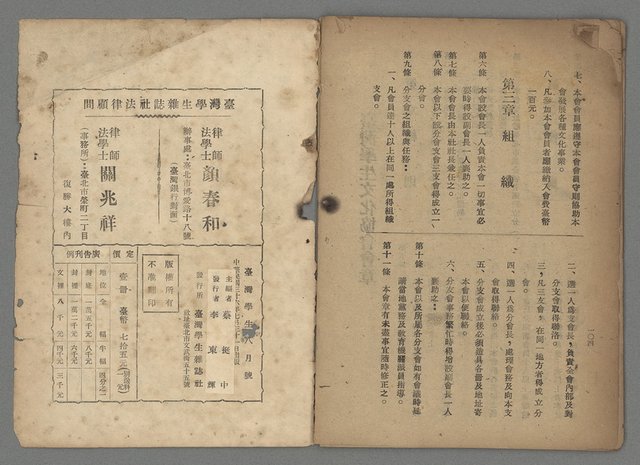 七、本會會員應遵守本會會員守則協助本
會發展各種文化事業。
八、凡參加本會會員者應繳納入會費臺幣
一百元。
第三章 組織
第六條 本會設會長一人負責本會一切事宜必
要時得設副會長一人襄助之。
第七條 本會會長由本社社長兼任之。
第八條 本會以下設分會支會三支會得成立一
分會。
第九條 分支會之組織與任務：
一、凡會員達十人以上在同一處所得組織
支會。
一〇四
二、選一人爲支會長，負責支會內部及對
分支會取得聯絡。
三、凡三支會，在同一地方者得成立分
會。
四、選一人爲分會長，處理會務及向本支
會取得聯絡。
五、分支會成立後必須造具名冊及地址寄
本會以便聯絡。
六、分支會事務繁忙時得增設副會長一人
襄助之。
第十條 本會以及所屬各分支會如有會議時最
請當地黨務及教育機關派員指導。
第十一條 本會章有未盡事宜隨時修正之。
臺灣學生雜誌社法律顧問
律師
法學士 顏春和
辦事處：臺北市博愛路十八號
（臺灣銀行對面）
律師
法學士 關兆祥
（事務所）：臺北市榮町二丁目
復勝大樓內
臺灣學生 八月號
主編者 蔡挺中
發行者 李東輝
發行所 臺灣學生雜誌社
社址臺北市文武街五十五號
版權所有
不准翻印
定價
壹冊 臺幣 七拾五元
廣告刊例
地位 全幅 半幅 四分之一
封底 一萬五千元 八千元
封裡 一萬二千元 六千元
文裡 八千元 四千元 三千元